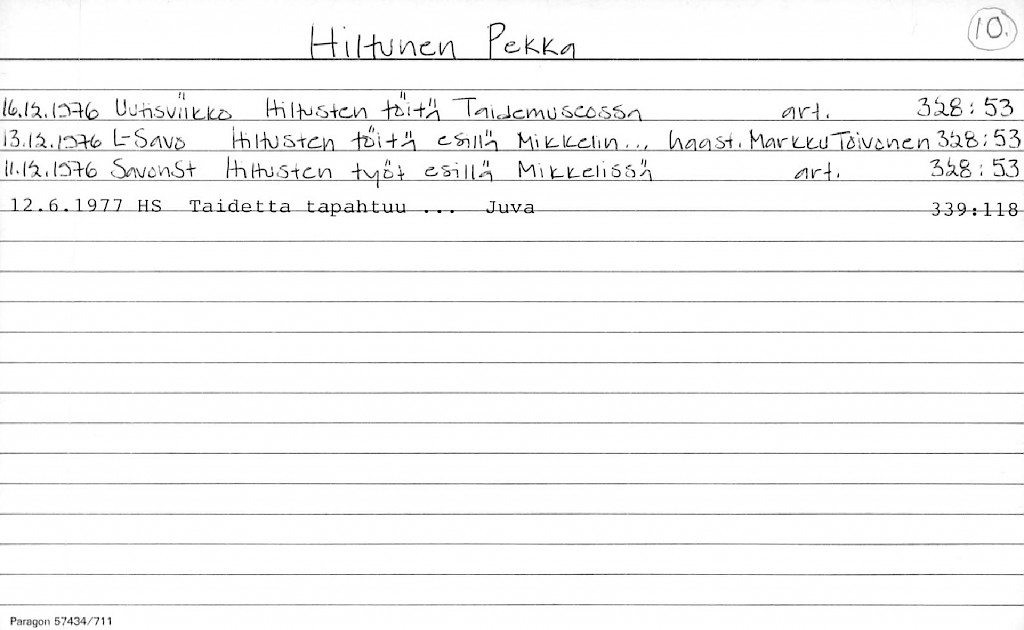 Hiltunen Pekka 10.
16.12.1976 Uutisviikko Hiltusten töitä Taidemuseossa art. 328:53
13.12.1976 L-Savo Hiltusten töitä esillä Mikkelin... haast. Markku Toivonen 328:53
11.12.1976 SavonSt Hiltusten työt esillä Mikkelissä art. 328:53
12.6.1977 HS Taidetta tapahtuu ... Juva 339:118
Paragon 57434/711